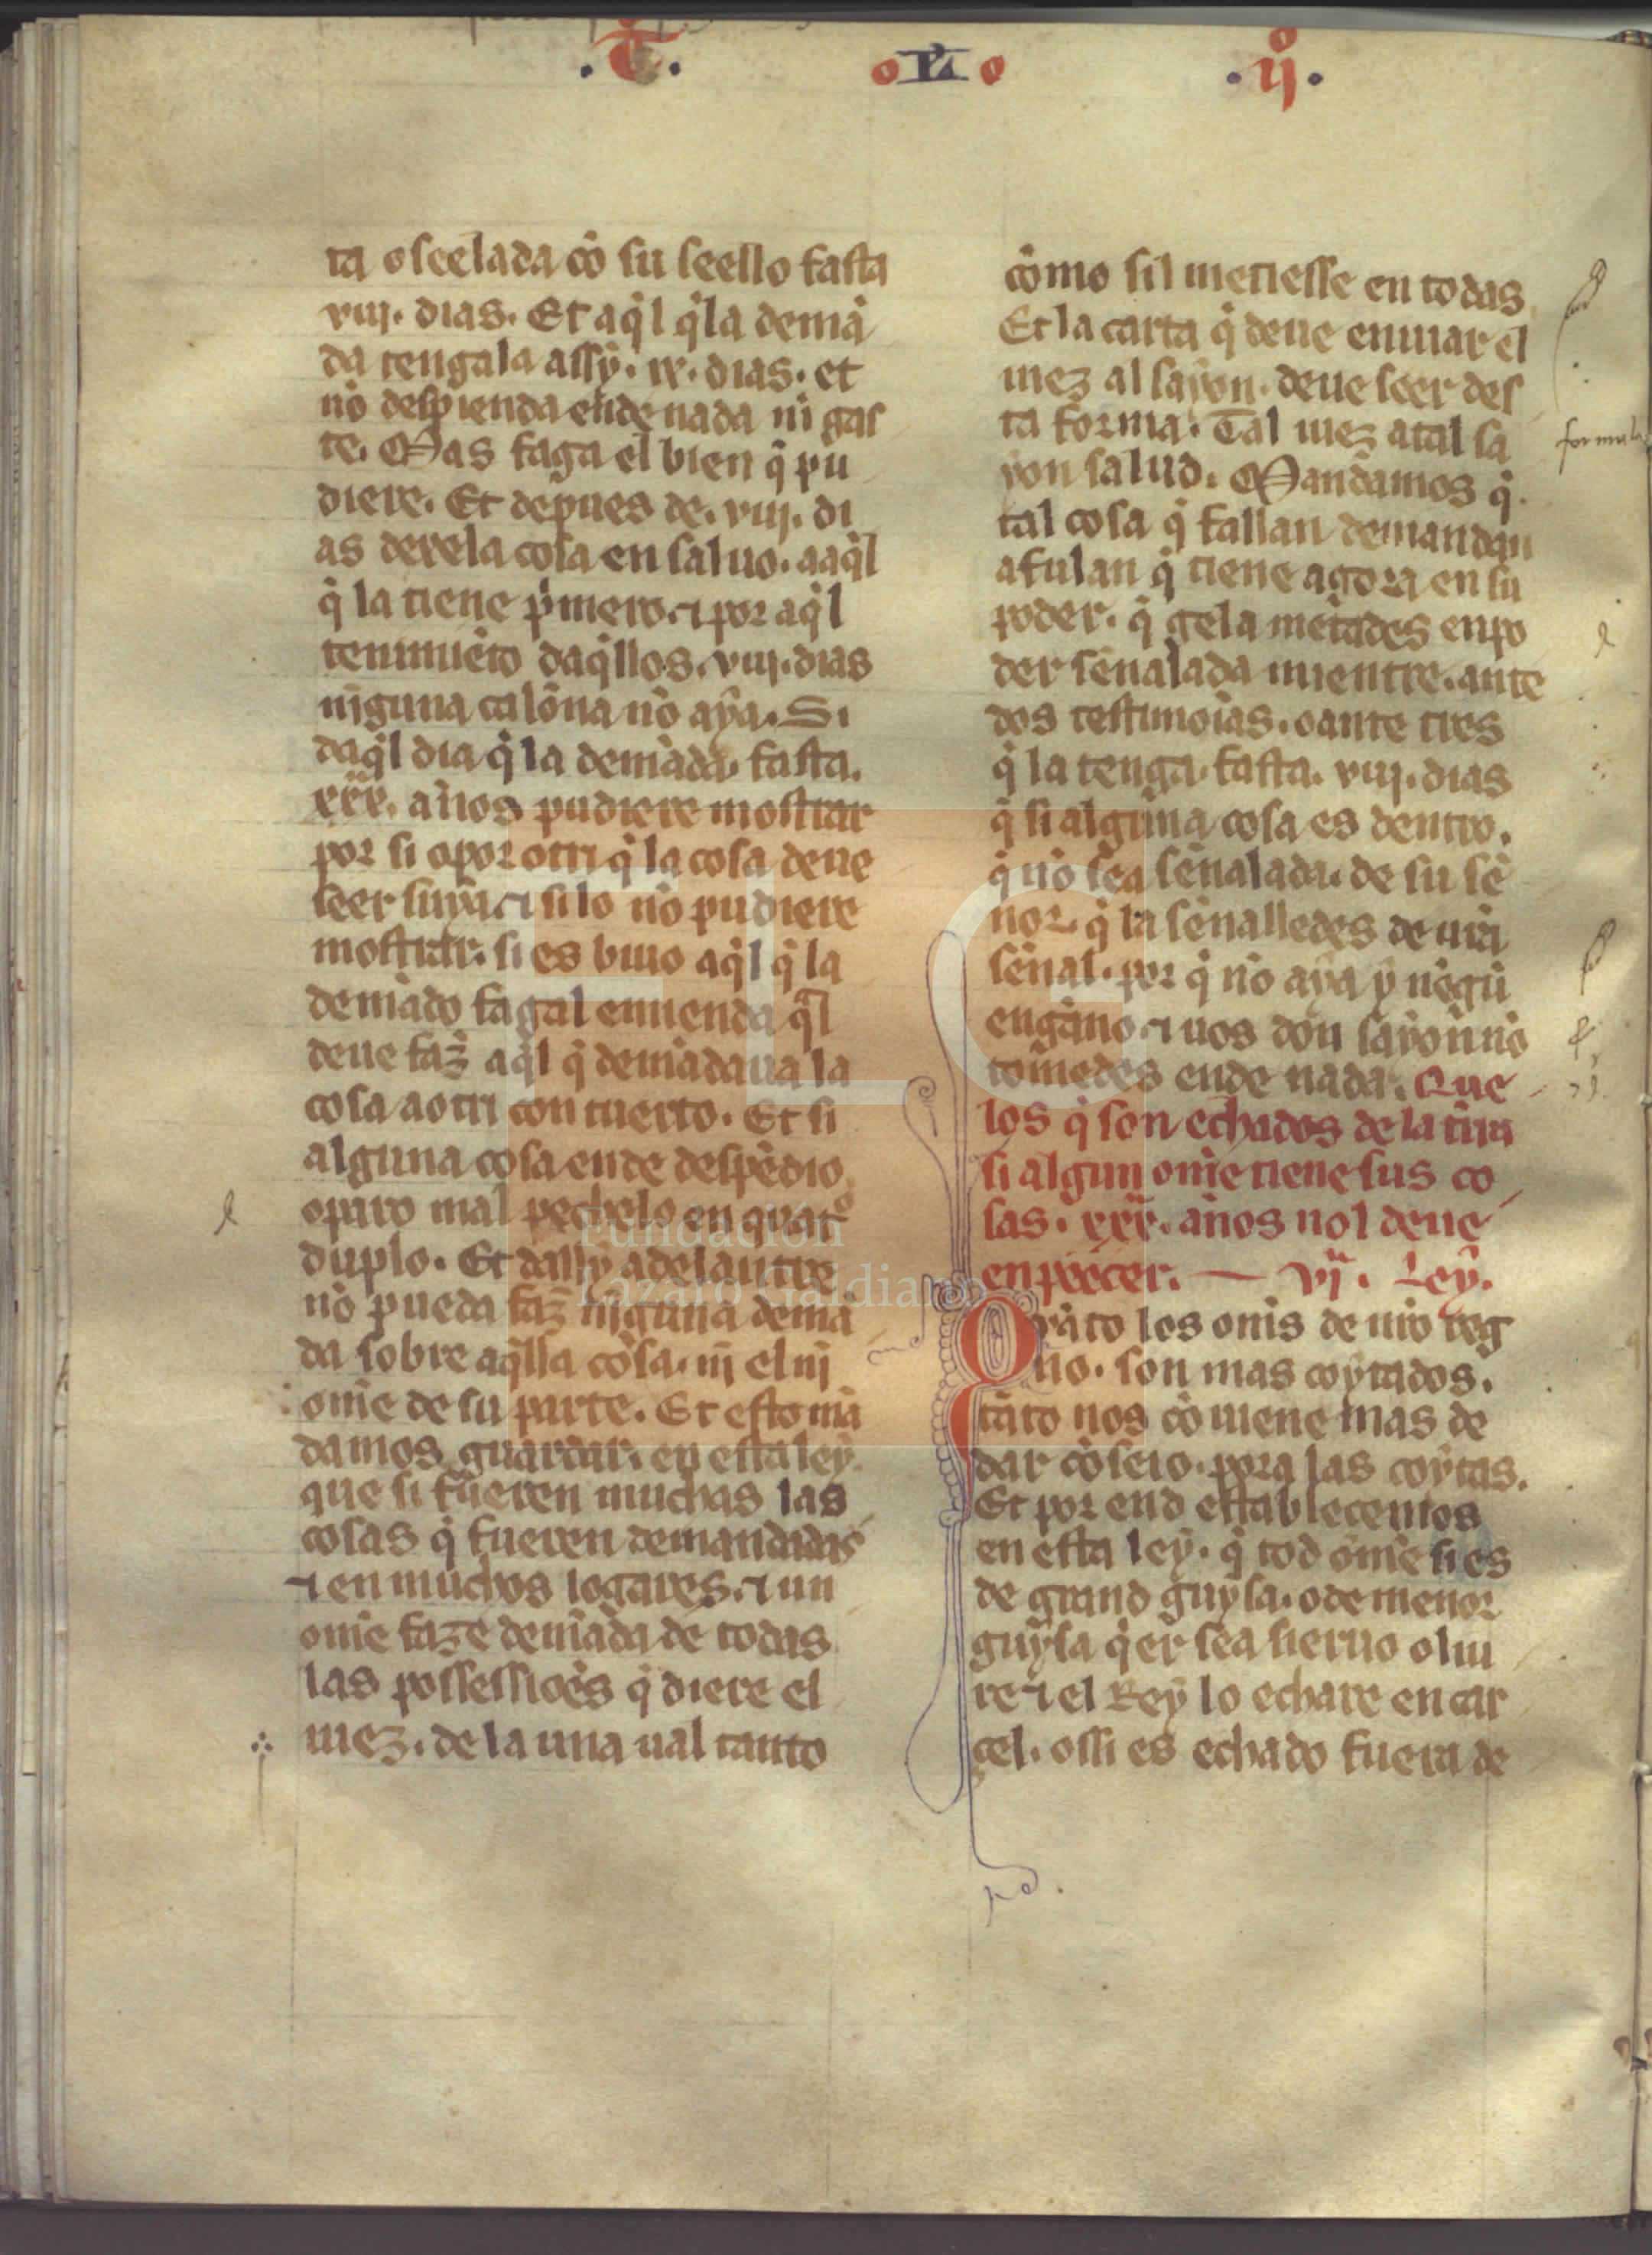 .T. o L o .ij.
ta o seelada cõ su seello fasta
viij. dias. Et aq̃l q̃ la demã
da tengala assy. ix. dias. et
nõ despienda ende nada nĩ gas
te. Mas faga el bien q̃ pu
diere. Et depues de. viij. di
as dexe la cosa en saluo. a aq̃l
q̃ la tiene p̃mero. ⁊ por aq̃l
tenimiẽto daq̃llos. viij. dias
nĩguna calõna nõ aya. Si
daq̃l dia q̃ la demãda fasta.
xxx. años pudiere mostrar
por si o por otri q̃ la cosa deue
seer suya. ⁊ si lo nõ pudiere
mostrar. si es biuo aq̃l q̃ la
demãdo fagal enmienda q̃l
deue faz̃ aq̃l q̃ demãdaua la
cosa a otri con tuerto. Et si
alguna cosa ende despẽdio
o paro mal pechelo en quatͦ
duplo. Et dally adelantre
nõ pueda faz̃ nĩguna demã
da sobre aq̃lla cosa. nĩ el nĩ
om̃e de su parte. Et esto mã
damos guardar. en esta ley.
que si fueren muchas las
cosas q̃ fueren demandadas
⁊ en muchos logares. ⁊ un
om̃e faze demãda de todas
las possessiões q̃ diere el
iuez. de la una ual tanto
cõmo sil metiesse en todas
Et la carta q̃ deue enuiar el
iuez al sayon. deue seer des
ta forma. Tal iuez a tal sa
yon salud. Mandamos q̃.
tal cosa q̃ fallan demandan
a fulan q̃ tiene agora en su
poder. q̃ gela metades en po
der señalada mientre. ante
dos testimoĩas. o ante tres
q̃ la tenga fasta. viij. dias
q̃ si alguna cosa es dentro.
q̃ nõ sea señalada. de su se
ñor. q̃ la señalledes de ur̃a
señal. por q̃ nõ aya y nẽgũ
engãno. ⁊ uos don sayon nõ
tomedes ende nada. Que
los q̃ son echados de la tiẽrra
si algun om̃e tiene sus co
sas. xxx. años nol deue
enpeecer. — vj. Ley.
Quãto los om̃s de nr̃o reg
no. son mas coytados.
tãto nos cõuiene mas de
dar cõseio. pora las coytas.
Et por end establecemos
en esta ley. q̃ tod om̃e si es
de grand guysa. o de menor
guysa q̃er sea sieruo o liu
re ⁊ el Rey lo echare en car
cel. o ssi es echado fuera de
formula
Fundación
Lázaro Galdiano